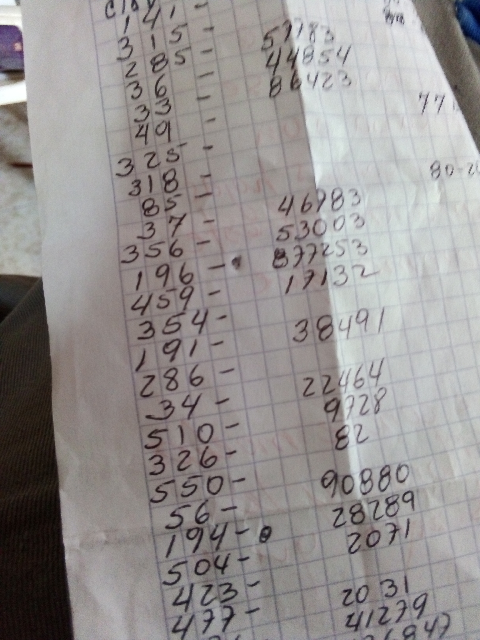 141 -
315 - 57783
285 - 44854
36 - 86423
33 -
49 -
325 -
318 -
85 - 46783
37 - 53003
356 - 877253
196 - 17132
459 -
354 - 38491
191 -
286 - 22464
34 - 9728
510 - 82
326 -
550 - 90880
56 - 28289
194 - 2071
504 -
423 - 2031
477 - 41279